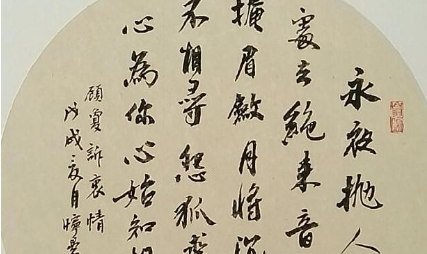 永夜抛人
處去絕來音
掩眉斂月將沉
不相尋怨孤衾
心為你心始知相
顧夐訴衷情
戊戌夏月